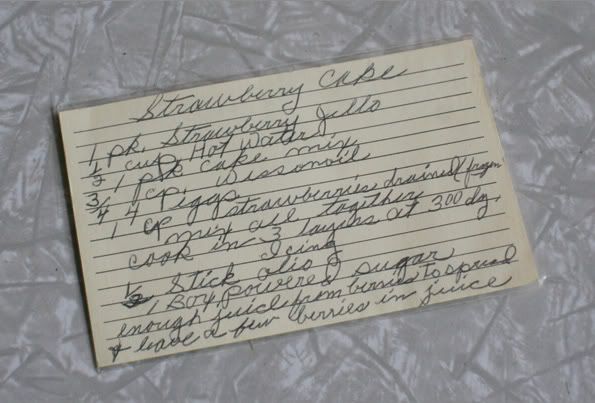 Strawberry Cake
1 pk. Strawberry Jello
1/2 cup Hot Water
1 pk cake mix
3/4 cp. Wissonoil
4 eggs
1 cp strawberries drained frozen
mix all together
cook in 3 layers at 300 dg.
Icing
1/2 Stick olio
1 Box powered sugar
enough juice from berries to spread
& leave a few berries in juice